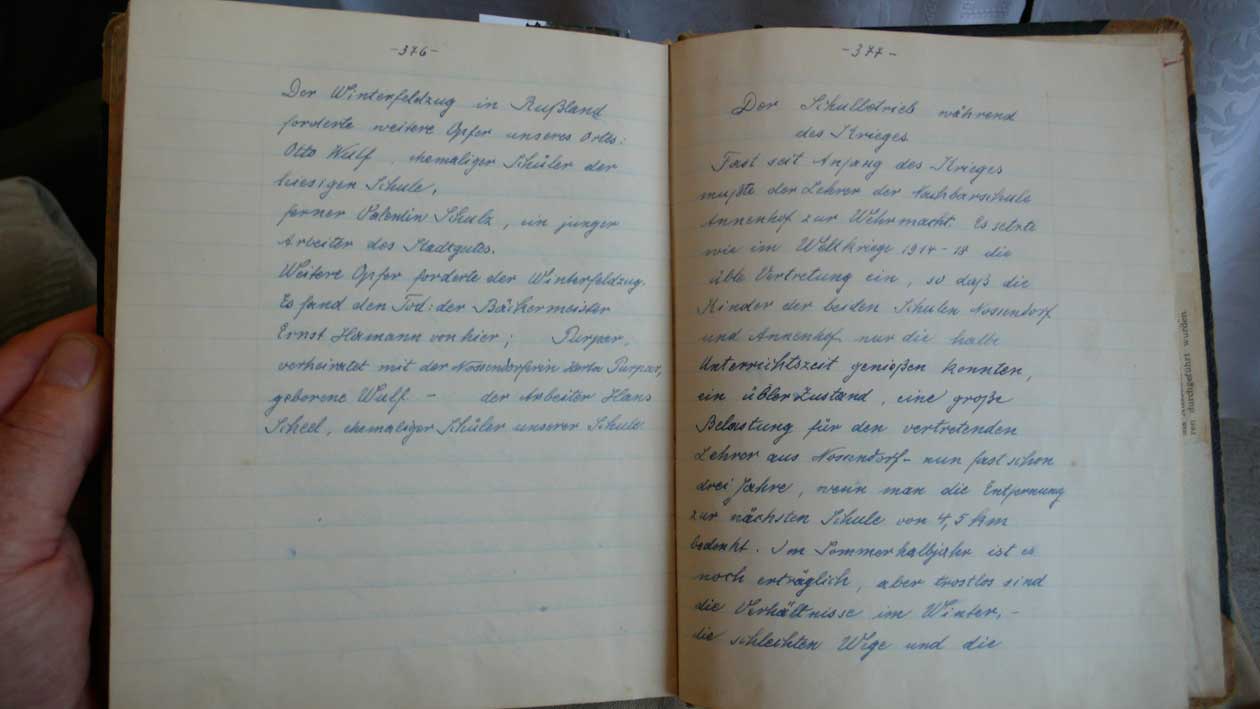 -376-
Der Winterfeldzug in Rußland
forderte weitere Opfer unseres Ortes:
Otto Wulf, ehemaliger Schüler der
hiesigen Schule,
ferner Valentin Schulz, ein junger
Arbeiter des Stadtgutes.
Weitere Opfer forderte der Winterfeldzug.
Es fand den Tod: der Bäckermeister
Ernst Hamann von hier; Purpar,
verheiratet mit der Nossendorferin Herta Purpar,
geborene Wulf - der Arbeiter Hans
Scheel, ehemaliger Schüler unserer Schule
-377-
Der Schulbetrieb während
des Krieges
Fast seit Anfang des Krieges
mußte der Lehrer der Nachbarschule
Annenhof zur Wehrmacht. Es setzte
wie im Weltkriege 1914-18 die
üble Vertretung ein, so daß die
Kinder der beiden Schulen Nossendorf
und Annenhof nur die halbe
Unterrichtszeit genießen konnten,
ein übler Zustand, eine große
Belastung für den vertretenden
Lehrer aus Nossendorf - nun fast schon
drei Jahre, wenn man die Entfernung
zur nächsten Schule von 4,5 km
bedenkt. Im Sommerhalbjahr ist es
noch erträglich, aber trostlos sind
die Verhältnisse im Winter, -
die schlechten Wege und die
ren durchgeführt wurden